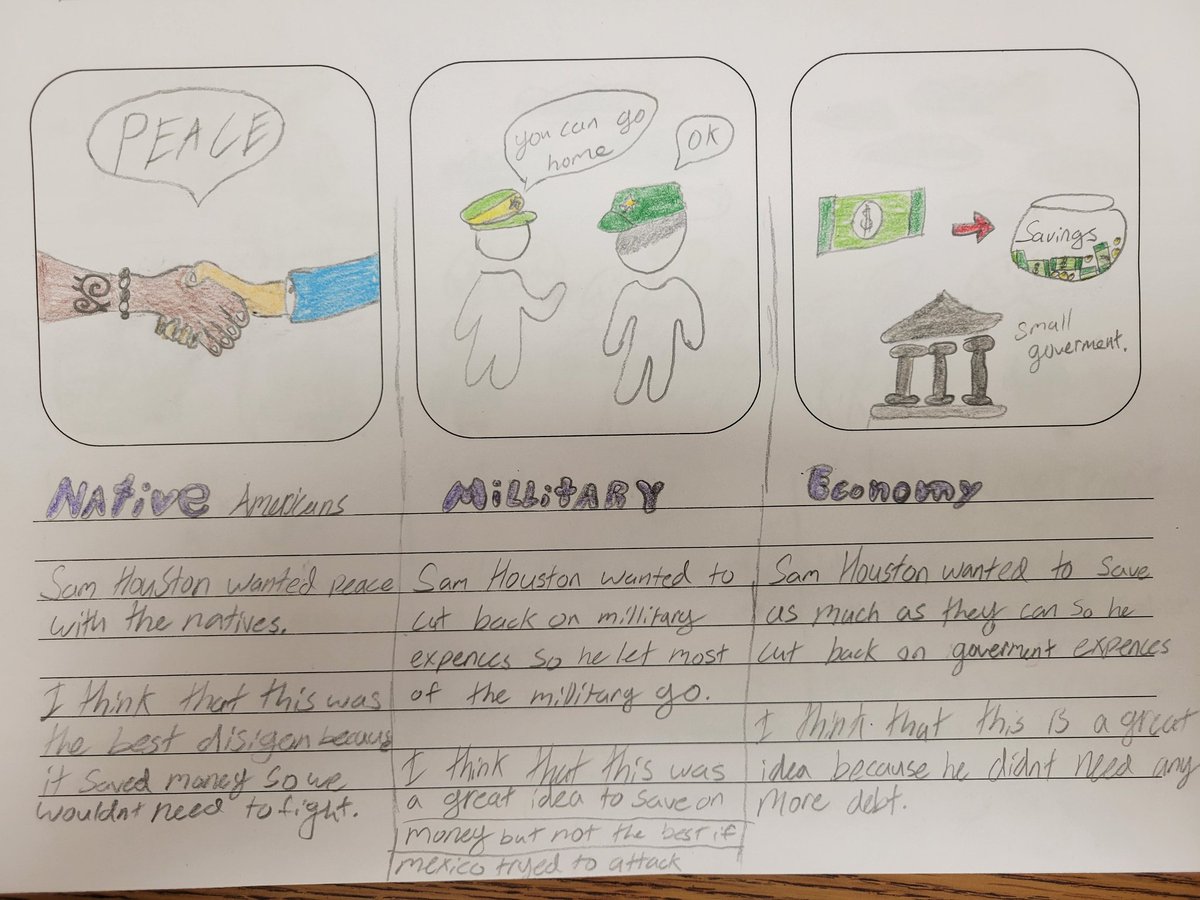 PEACE
you can go
home
OK
Savings
$
Small
goverment.
NATive Americans
Sam Houston wanted peace
with the natives.
I think that this was
the best disigon because
it saved money so we
wouldnt need to fight.
MillitARY
Sam Houston wanted to
cut back on millitary
expences so he let most
of the military go.
I think that this was
a great idea to save on
money but not the best if
mexico tryed to attack
Economy
Sam Houston wanted to save
as much as they can so he
cut back on goverment expences
I think that this is a great
idea because he didnt need any
more debt.